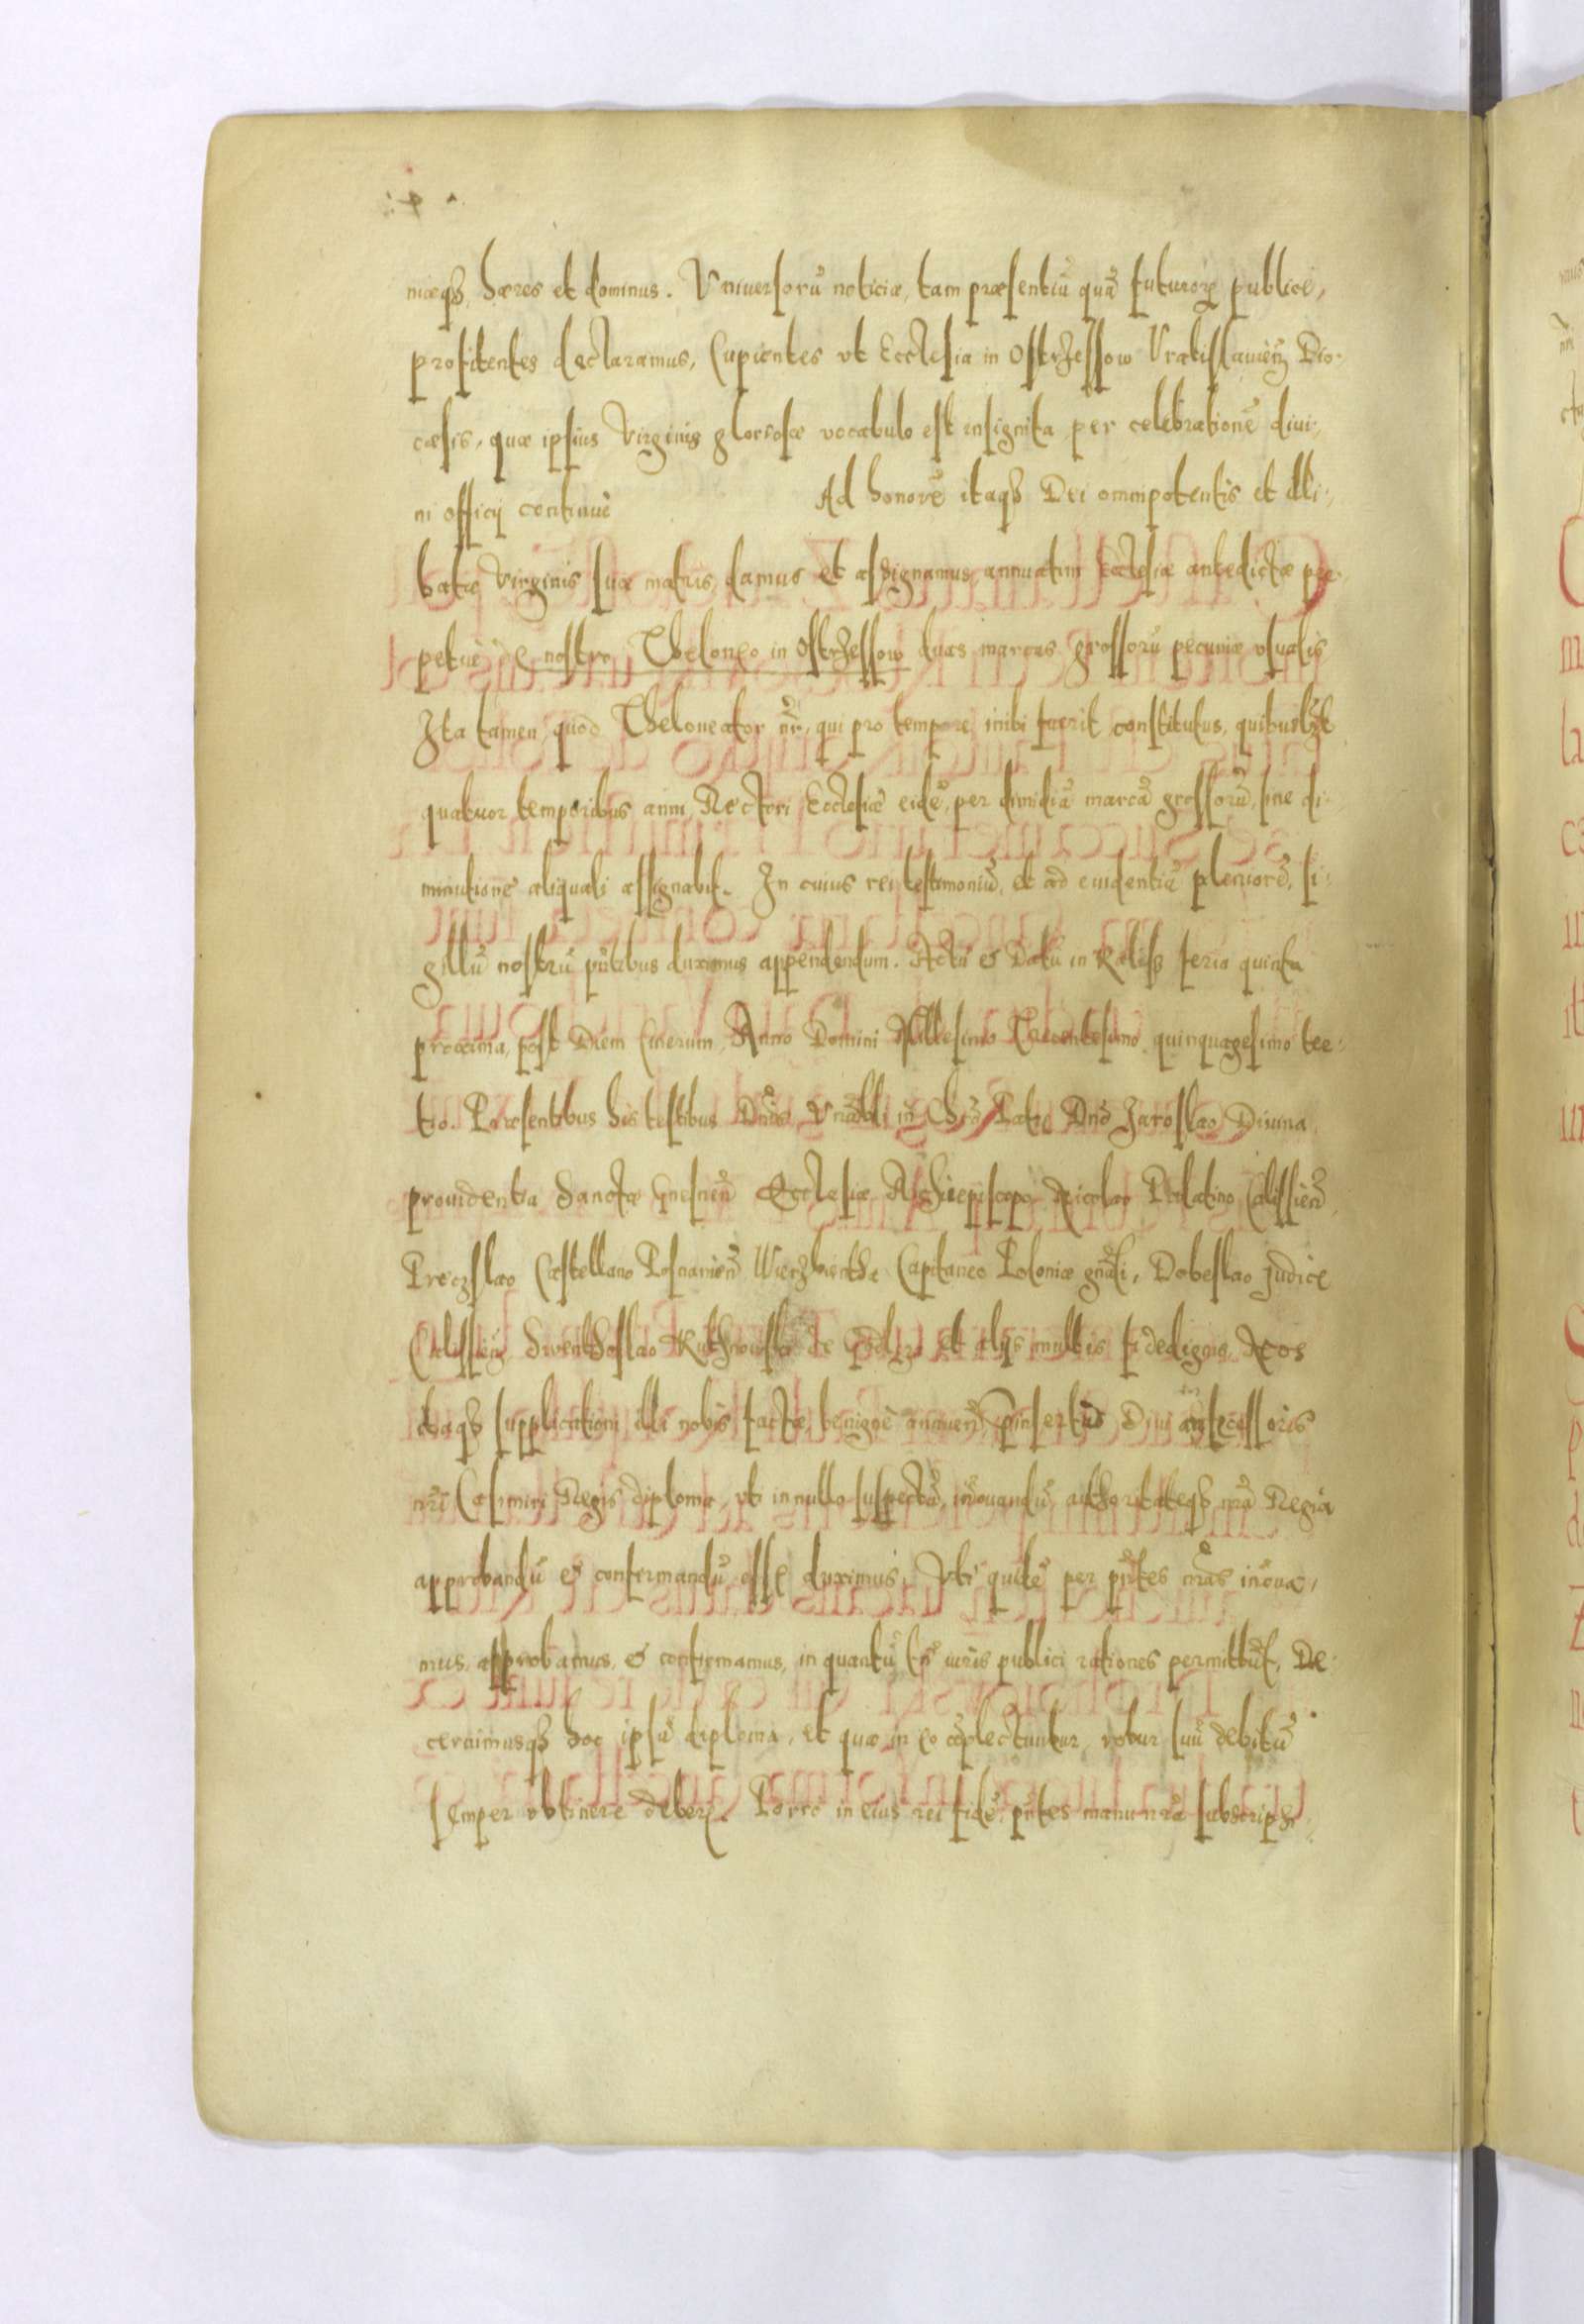 niæq₃ hæres et dominus. Vniuersorũ noticiæ, tam præsentiũ quã futurorꝝ publice,
profitentes declaramus, Cupientes vt Ecclesia in Ostrzessow Vratislauień Dio-
cæsis, quæ ipsius Virginis gloriosæ vocabulo est insignita per celebrationẽ diui-
ni officij continuè Ad honorẽ itaq₃ Dei omnipotentis et illi-
batæ Virginis suæ matris, damus et assignamus annuatim Ecclesiæ antedictæ per-
petuè è nostro Theloneo in Ostrzessow duas marcas grossorũ pecuniæ vsualis
Ita tamen, quod Theloneator nr̃, qui pro tempore inibi fuerit constitutus, quibuslꝫt
quatuor temporibus anni, Rectori Ecclesiæ eidẽ, per dimidiã marcã grossorũ, sine di-
minutionè aliquali assignabit. In cuius rei testimoniũ, et ad euidentiã pleniorẽ, si-
gillũ nostrũ pñtibus duximus appendendum. Actũ et Datũ in Kalisz feria quinta
proxima, post Diem Cinerum, Anno Domini Millesimo Trecentesimo quinquagesimo ter-
tio. Præsentibus his testibus Dñis, Vnãbli in Chrõ Patre Dnõ Jaroslao Diuina
prouidentia Sanctæ Gnesneñ Ecclesiæ Archiepiscopo Nicolao Palatino Calissieñ,
Preczslao Castellano Posnanieñ Wierzbientha Capitaneo Poloniæ gnãli, Dobeslao Judice
Calissień Swenthoslao de et alijs multis fidedignis, Nos
itaq₃ supplicationi illi nobis factæ, benignè annueñ, p̃insertũ Diui antecessoris
nr̃i Casimiri Regis diploma, vti in nullo suspectũ, iñouandũ, authoritateq₃ nr̃a Regia
approbandũ et confirmandũ esse duximus, Vti quidẽ per pñtes nr̃as iñoua,
mus, approbamus, et confirmamus, in quantũ tñ iuris publici rationes permittũt, De-
cernimusq₃ hoc ipsũ diploma, et quæ in eo cõplectuntur, robur suũ debitũ
semper obtinere debere. Porro in eius rei fidẽ, pñtes manu nr̃a subscripsi-